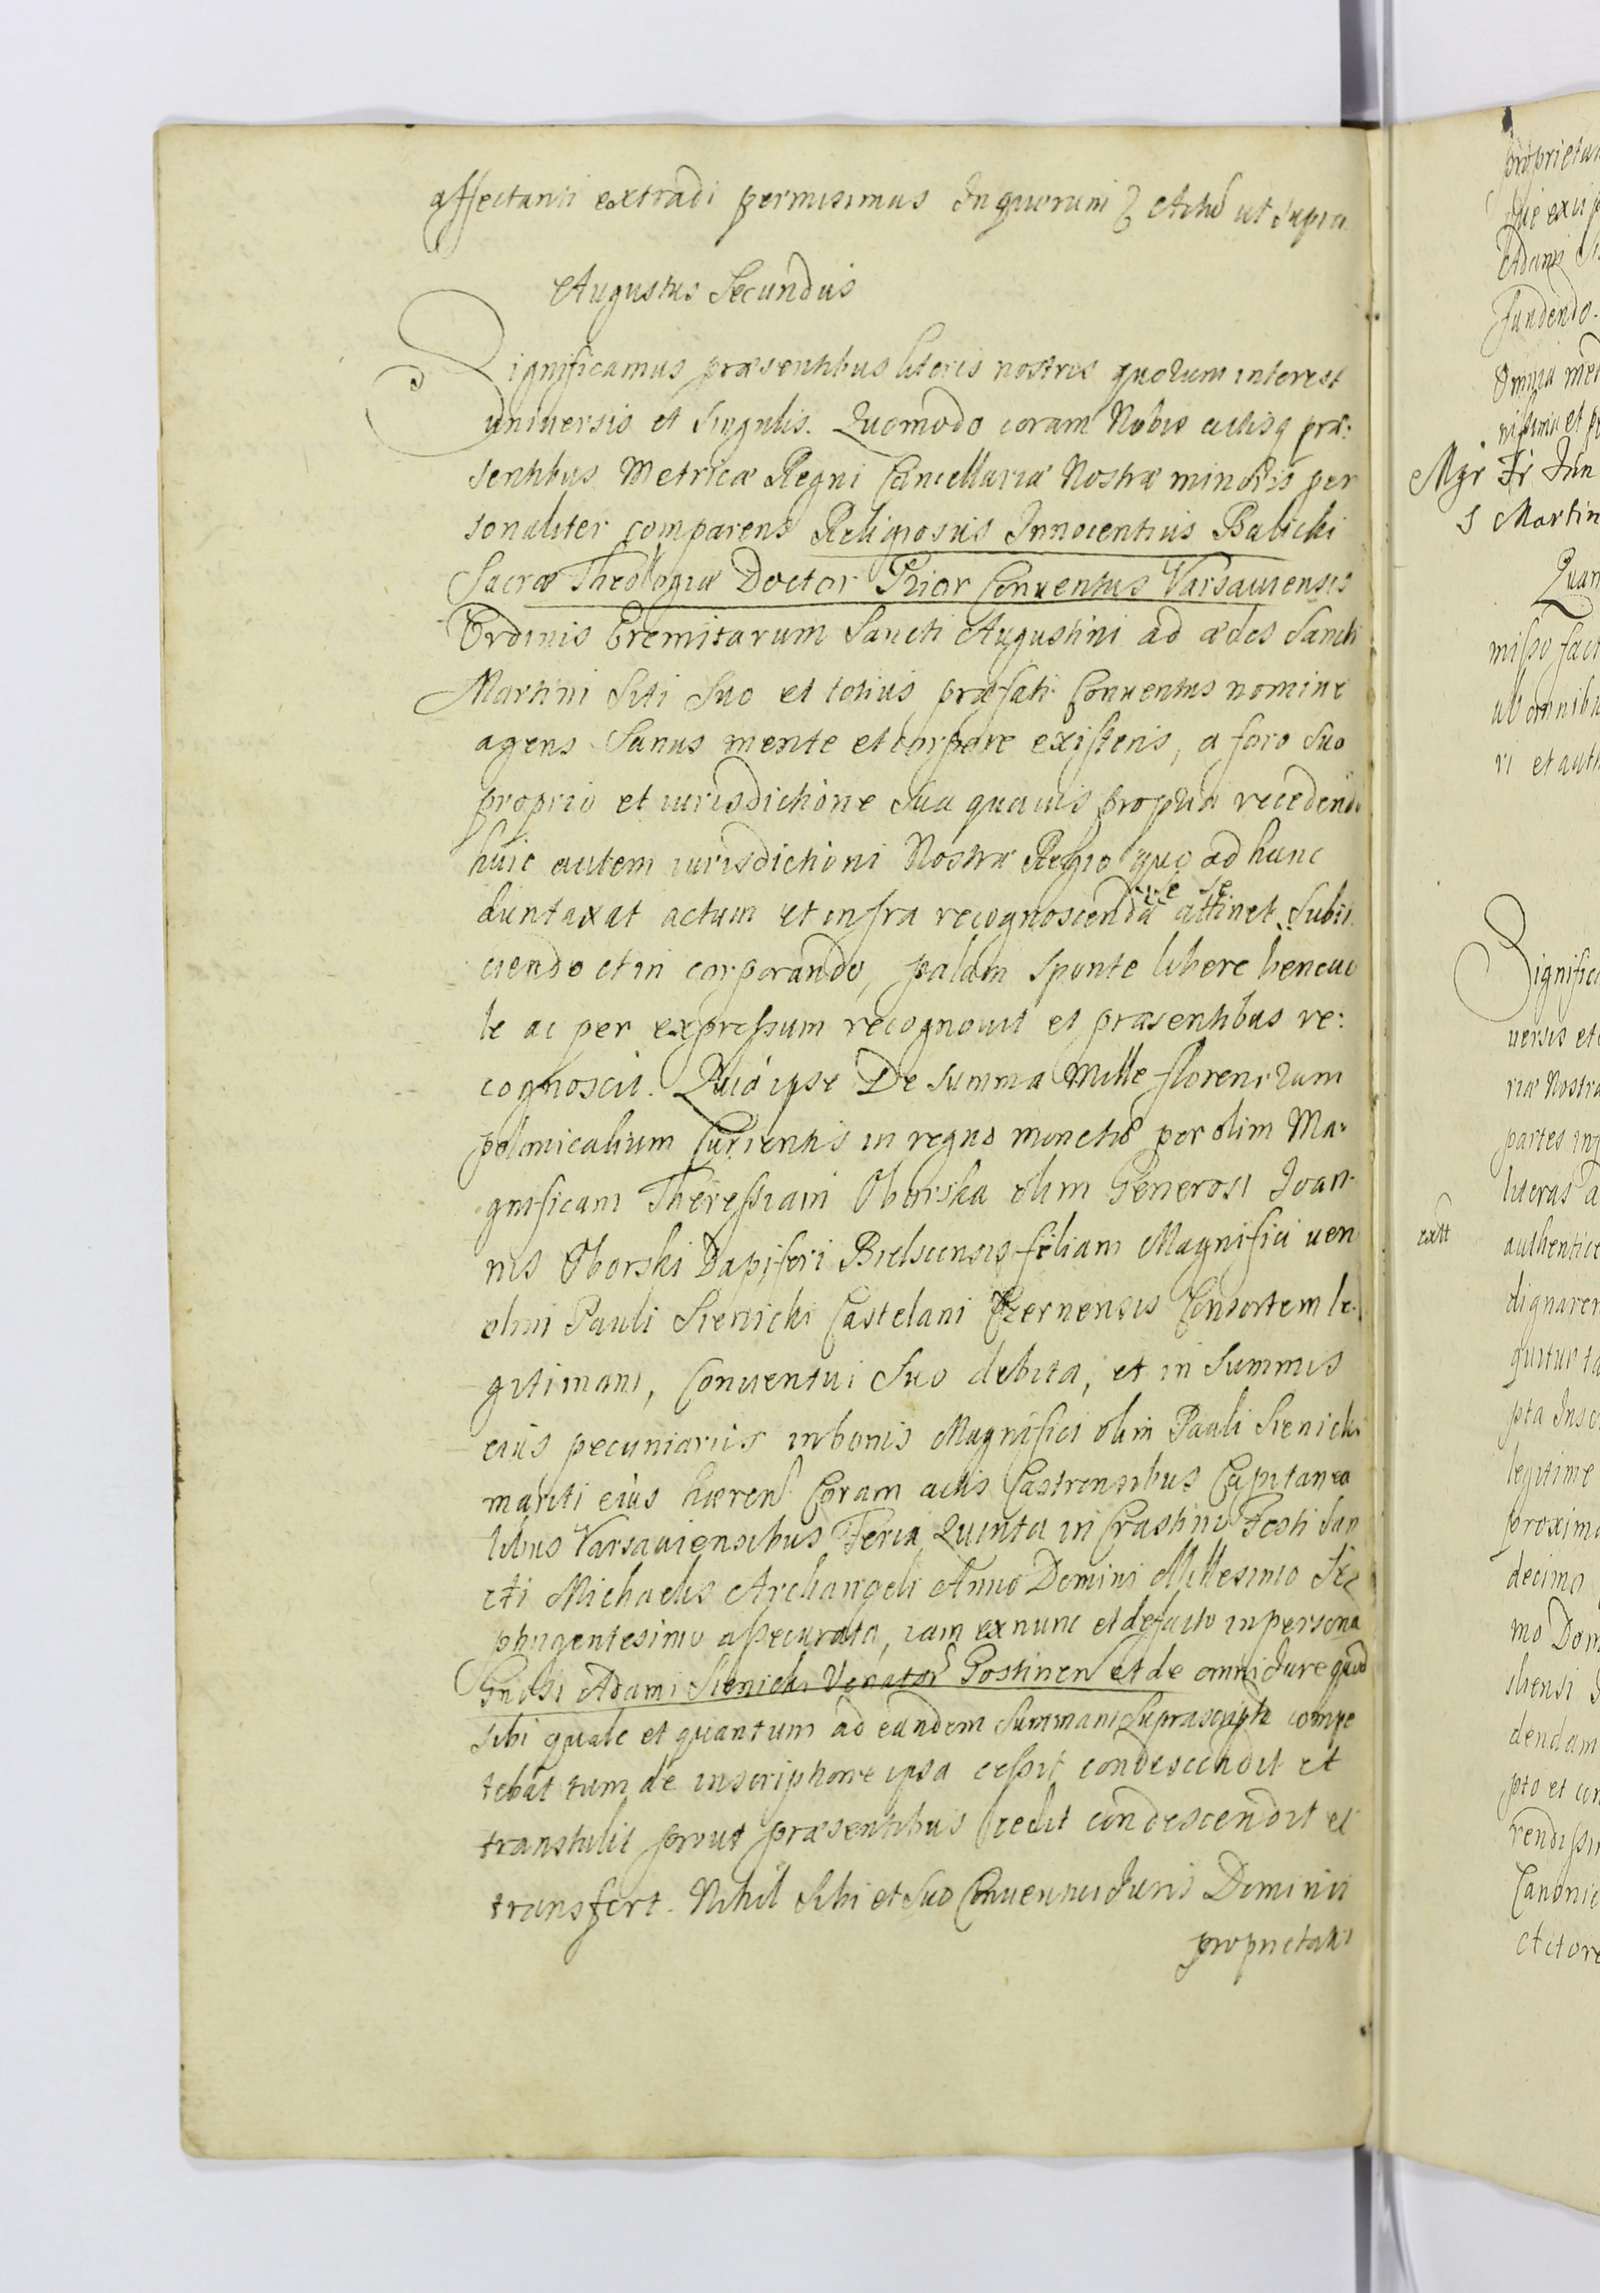 affectanti extradi permisimus In quorum Actu ut supra
Augustus Secundus
Significamus præsentibus literis nostris quorum interest
universis et singulis. Quomodo coram Nobis actisq præ:
sentibus Metricæ Regni Cancellariæ Nostræ minoris per
sonaliter comparens Religiosus Innocentius Balicki
Sacræ Theologiæ Doctor Prior Conventus Varsaviensis
Ordinis Eremitarum Sancti Augustini ad ædes Sancti
Martini Siti Suo et totius præfati Conventus nomine
agens Sanus mente et corpore existens, a foro Suo
proprio et iurisdictione Sua quavis propria recedendo
huic autem iurisdictioni Nostræ Regiæ quo ad hunc
duntaxat actum et infra recognoscenda attinet se Subii
ciendo et in corporando, palam sponte libere benevo
le ac per expressum recognovit et præsentibus re:
cognoscit. Quia ipse De summa Mille florenorum
polonicalium Currentis in regno monetæ per olim Ma-
gnificam Theressiam Oborska olim Generosi Joan
nis Oborski Dapiferi Bielscensis filiam Magnifici ven
olim Pauli Sienicki Castelani Czernensis Consortem le
gitimam, Conventui Suo debita, et in Summis
eius pecuniariis in bonis Magnifici olim Pauli Sienicki
mariti eius hæren Coram actis Castrensibus Capitanea
libus Varsaviensibus Feria Quinta in Crastino Festi San
cti Michaelis Archangeli Anno Domini Millesimo Se
ptingentesimo assecurata, iam ex nunc et de facto in persona
Gnosi Adami Sienicki Venator Gostinen et de omni Jure quod
Sibi quale et quantum ad eandem Summam Suprascripta compe
tebat tum de inscriptione ipsa cessit condescendit et
transtulit prout præsentibus cedit condescendit et
transfert. Nihil Sibi et Suo Conventui Juris Dominii
proprietatis
proprietat
Adami
fundendo.
omnia
et
Mgr Fr Inn
S Martin
Quam
misso fact
ab omnibu
ri et auth
Signific
versis et
riæ Nostræ
partes
literas a
extt
authentice
dignarem
legitime
proxima
decimo
mo Dom
dendam
pto et con
Canonic
Actore